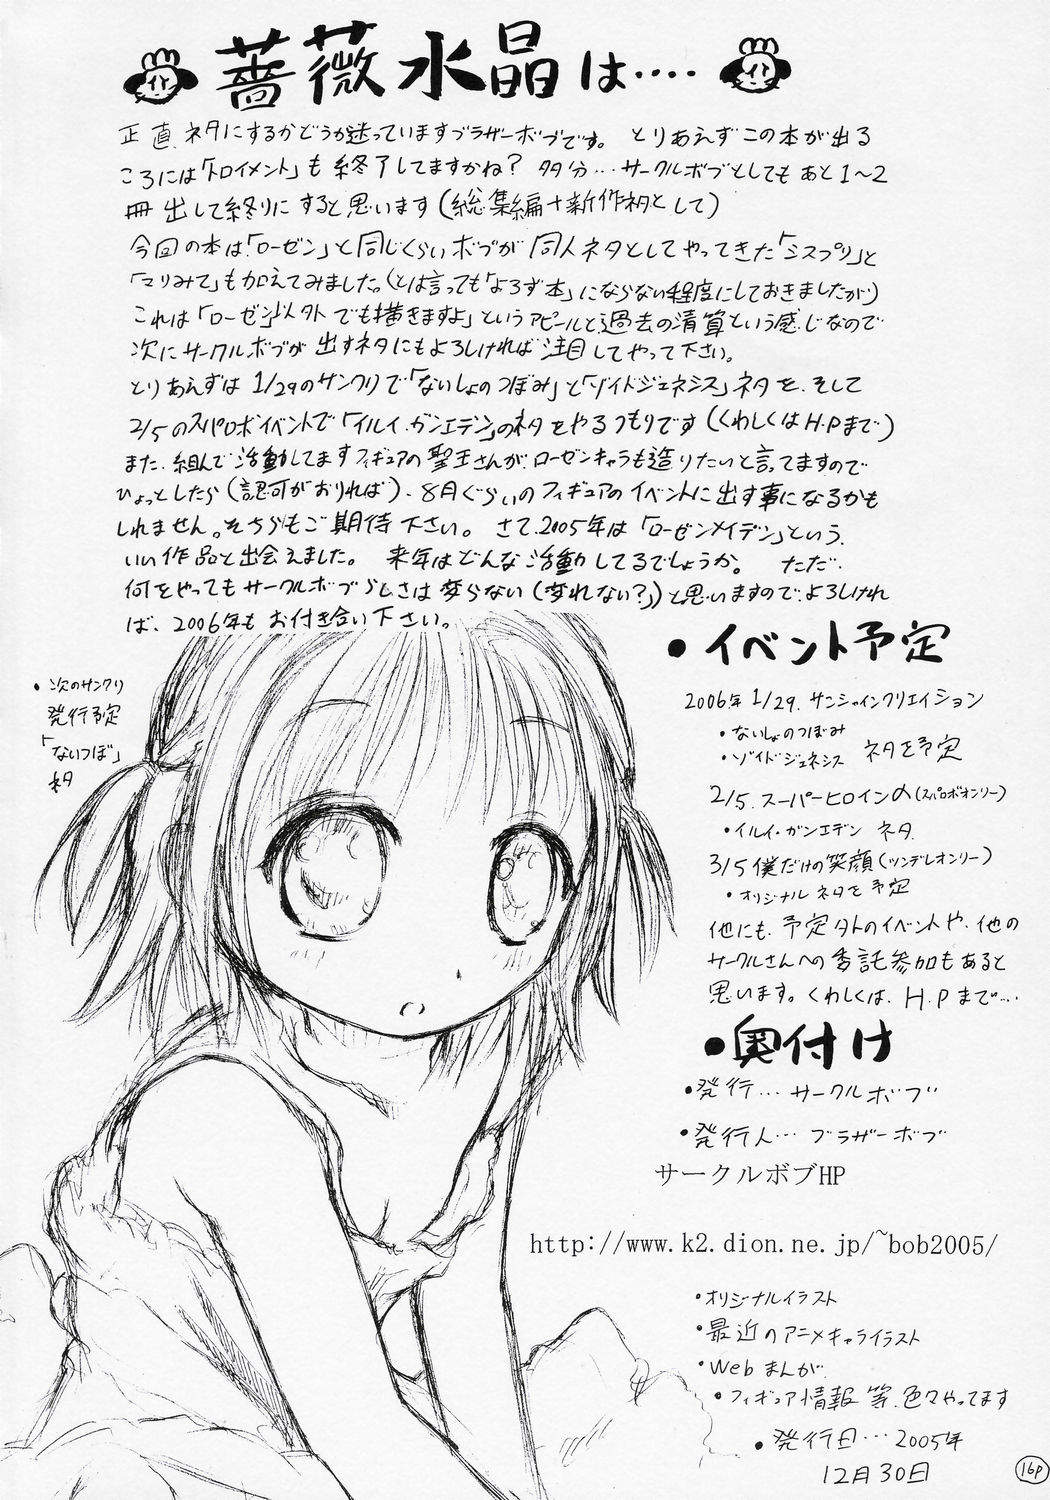 薔薇水晶は‥‥
正直、ネタにするかどうか迷っていますブラザーボブです。 とりあえずこの本が出る
ころには「トロイメント」も終了してますかね? 多分…サークルボブとしてもあと1〜2
冊出して終りにすると思います(総集編+新作ネタとして)
今回の本は「ローゼン」と同じくらいボブが同人ネタとしてやってきた「シスプリ」と
「マリみて」も加えてみました。(とは言っても「よろず本」にならない程度にしておきましたが)
これは「ローゼン」以外でも描きますよ」というアピールと、過去の清算という感じなので
次にサークルボブが出すネタにもよろしければ注目してやって下さい。
とりあえずは1/29のサンクリで「ないしょのつぼみ」と「ゾイドジェネシス」ネタを、そして
2/5のスパロボイベントで「イルイ・ガンエデン」のネタをやるつもりです(くわしくはH.Pまで)
また、組んで活動してますフィギュアの聖王さんが、ローゼンキャラも造りたいと言ってますので
ひょっとしたら(認可がおりれば)、8月ぐらいのフィギュアのイベントに出す事になるかも
しれません。そちらもご期待下さい。 さて、2005年は「ローゼンメイデン」という
いい作品と出会えました。 来年はどんな活動してるでしょうか。 ただ、
何をやってもサークルボブらしさは変らない(変れない?)と思いますので、よろしけれ
ば、2006年もお付き合い下さい。
・次のサンクリ
発行予定
「ないつぼ」
ネタ
・イベント予定
2006年1/29. サンシャインクリエイション
・ないしょのつぼみ
・ゾイドジェネシス ネタを予定
2/5. スーパーヒロインの(スパロボオンリー)
・イルイ・ガンエデン ネタ
3/5 僕だけの笑顔(ツンデレオンリー)
・オリジナルネタを予定
他にも、予定外のイベントや、他の
サークルさんへの委託参加もあると
思います。くわしくは、H.Pまで…
・奥付け
・発行…サークルボブ
・発行人…ブラザーボブ
サークルボブHP
http://www.k2.dion.ne.jp/~bob2005/
・オリジナルイラスト
・最近のアニメキャライラスト
・Webまんが
・フィギュア情報 等、色々やってます
・発行日…2005年
12月30日
16P